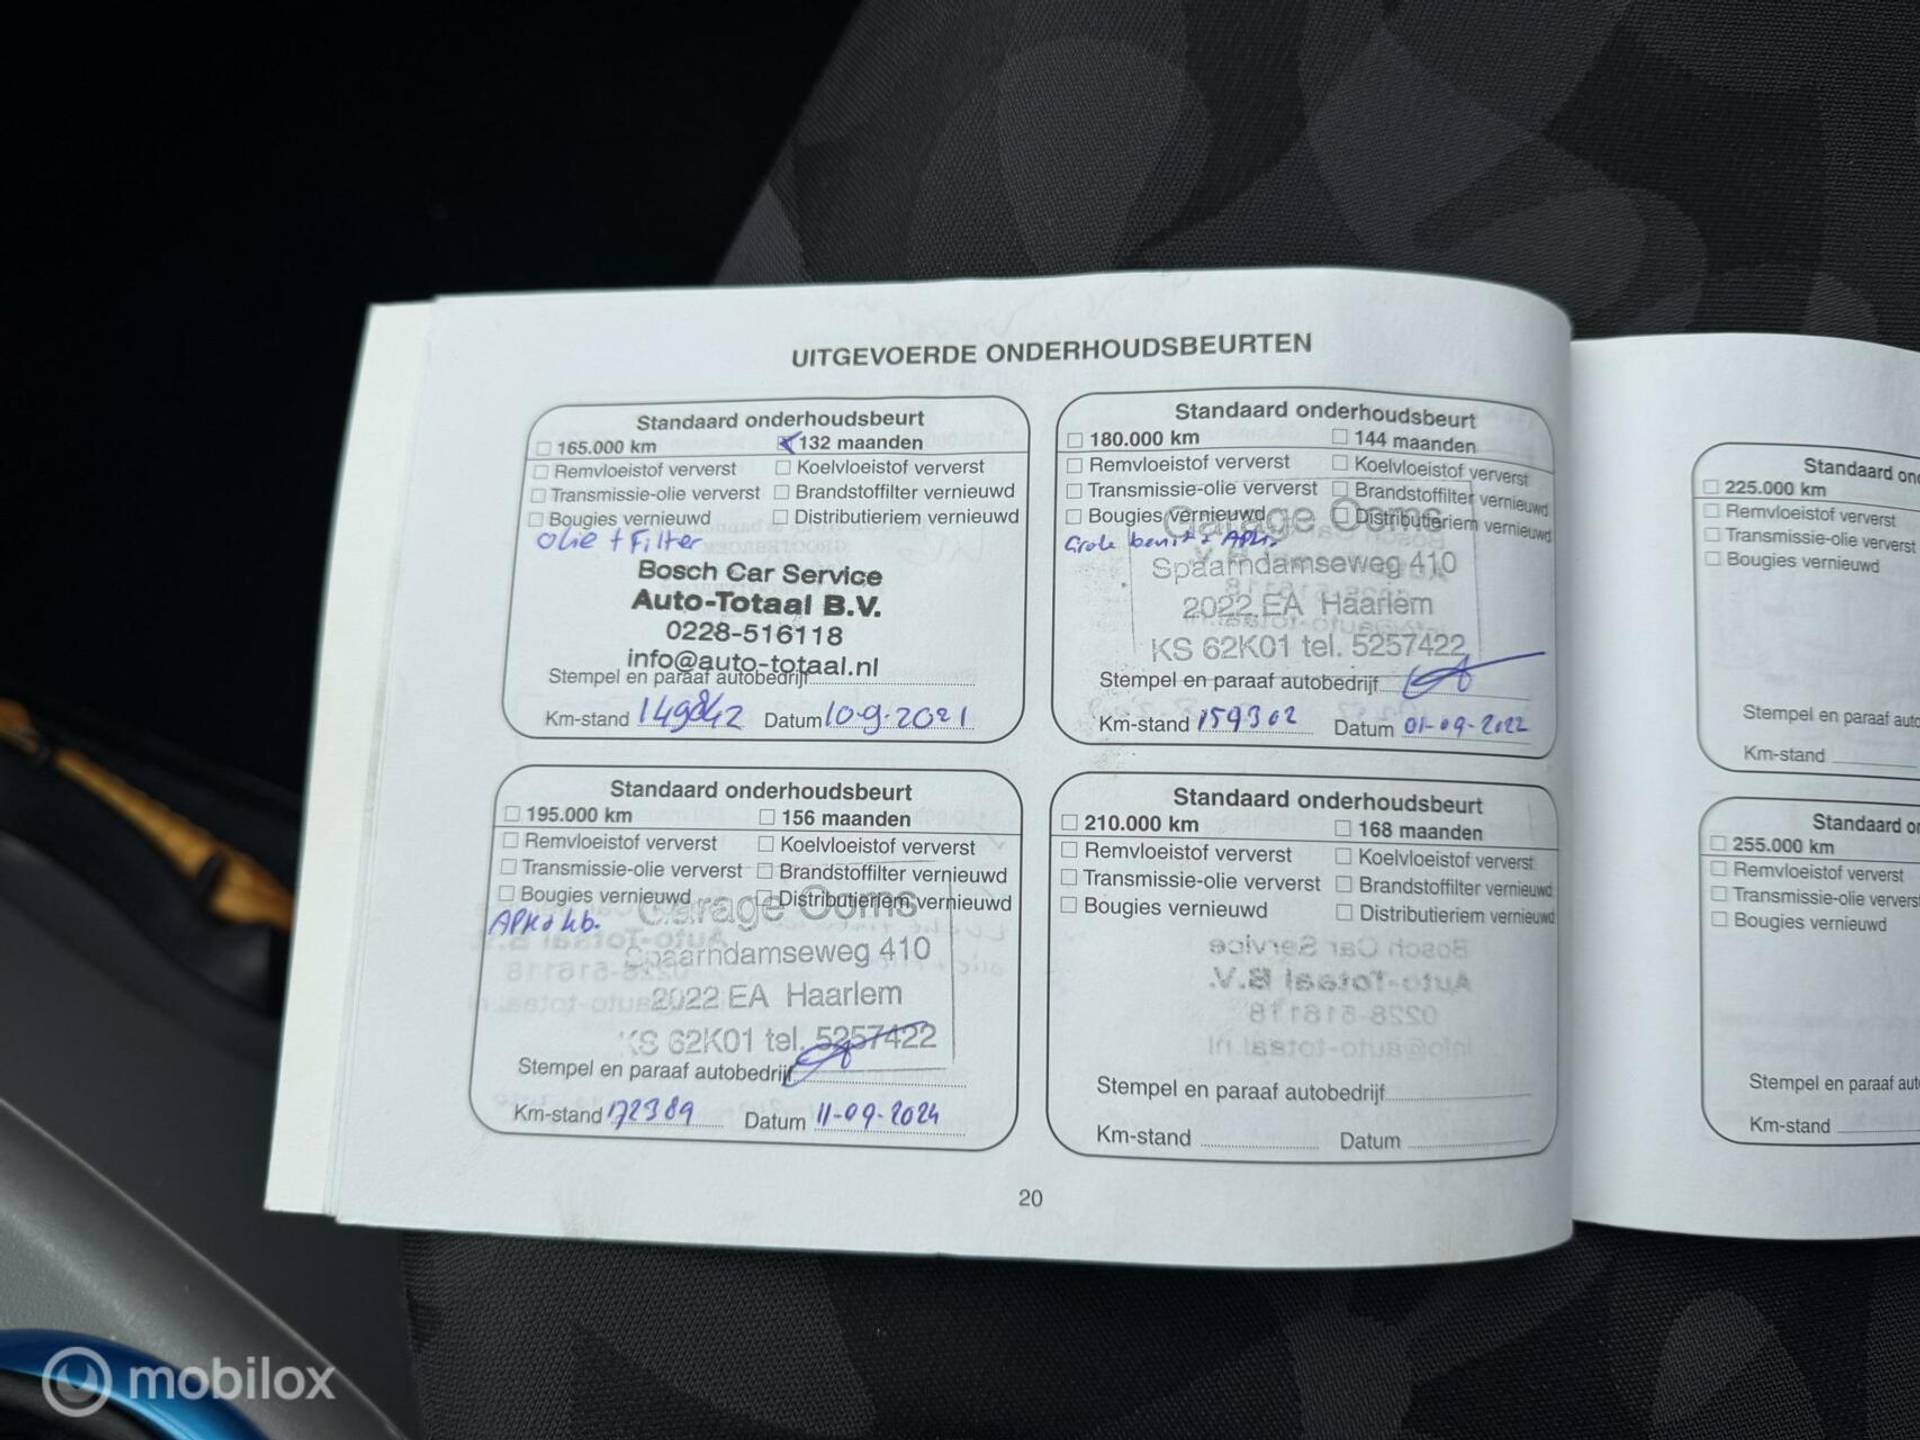 UITGEVOERDE ONDERHOUDSBEURTEN
Standaard onderhoudsbeurt
165.000 km 132 maanden
Remvloeistof ververst Koelvloeistof ververst
Transmissie-olie ververst Brandstoffilter vernieuwd
Bougies vernieuwd Distributieriem vernieuwd
olie + Filter
Bosch Car Service
Auto-Totaal B.V.
0228-516118
info@auto-totaal.nl
Stempel en paraaf autobedrijf
Km-stand 149842 Datum 10-9-2021
Standaard onderhoudsbeurt
180.000 km 144 maanden
Remvloeistof ververst Koelvloeistof ververst
Transmissie-olie ververst Brandstoffilter vernieuwd
Bougies vernieuwd Distributieriem vernieuwd
Garage Ooms
Spaarndamseweg 410
2022 EA Haarlem
KS 62K01 tel. 5257422
Stempel en paraaf autobedrijf
Km-stand 159302 Datum 01-09-2022
Standaard onderhoudsbeurt
195.000 km 156 maanden
Remvloeistof ververst Koelvloeistof ververst
Transmissie-olie ververst Brandstoffilter vernieuwd
Bougies vernieuwd Distributieriem vernieuwd
Garage Ooms
Spaarndamseweg 410
2022 EA Haarlem
KS 62K01 tel. 5257422
Stempel en paraaf autobedrijf
Km-stand 172389 Datum 11-09-2024
Standaard onderhoudsbeurt
210.000 km 168 maanden
Remvloeistof ververst Koelvloeistof ververst
Transmissie-olie ververst Brandstoffilter vernieuwd
Bougies vernieuwd Distributieriem vernieuwd
Stempel en paraaf autobedrijf
Km-stand Datum
20
Standaard
225.000 km
Remvloeistof ververst
Transmissie-olie ververst
Bougies vernieuwd
Stempel en paraaf
Km-stand
Standaard
255.000 km
Remvloeistof ververst
Transmissie-olie
Bougies vernieuwd
Stempel en paraaf
Km-stand
mobilox